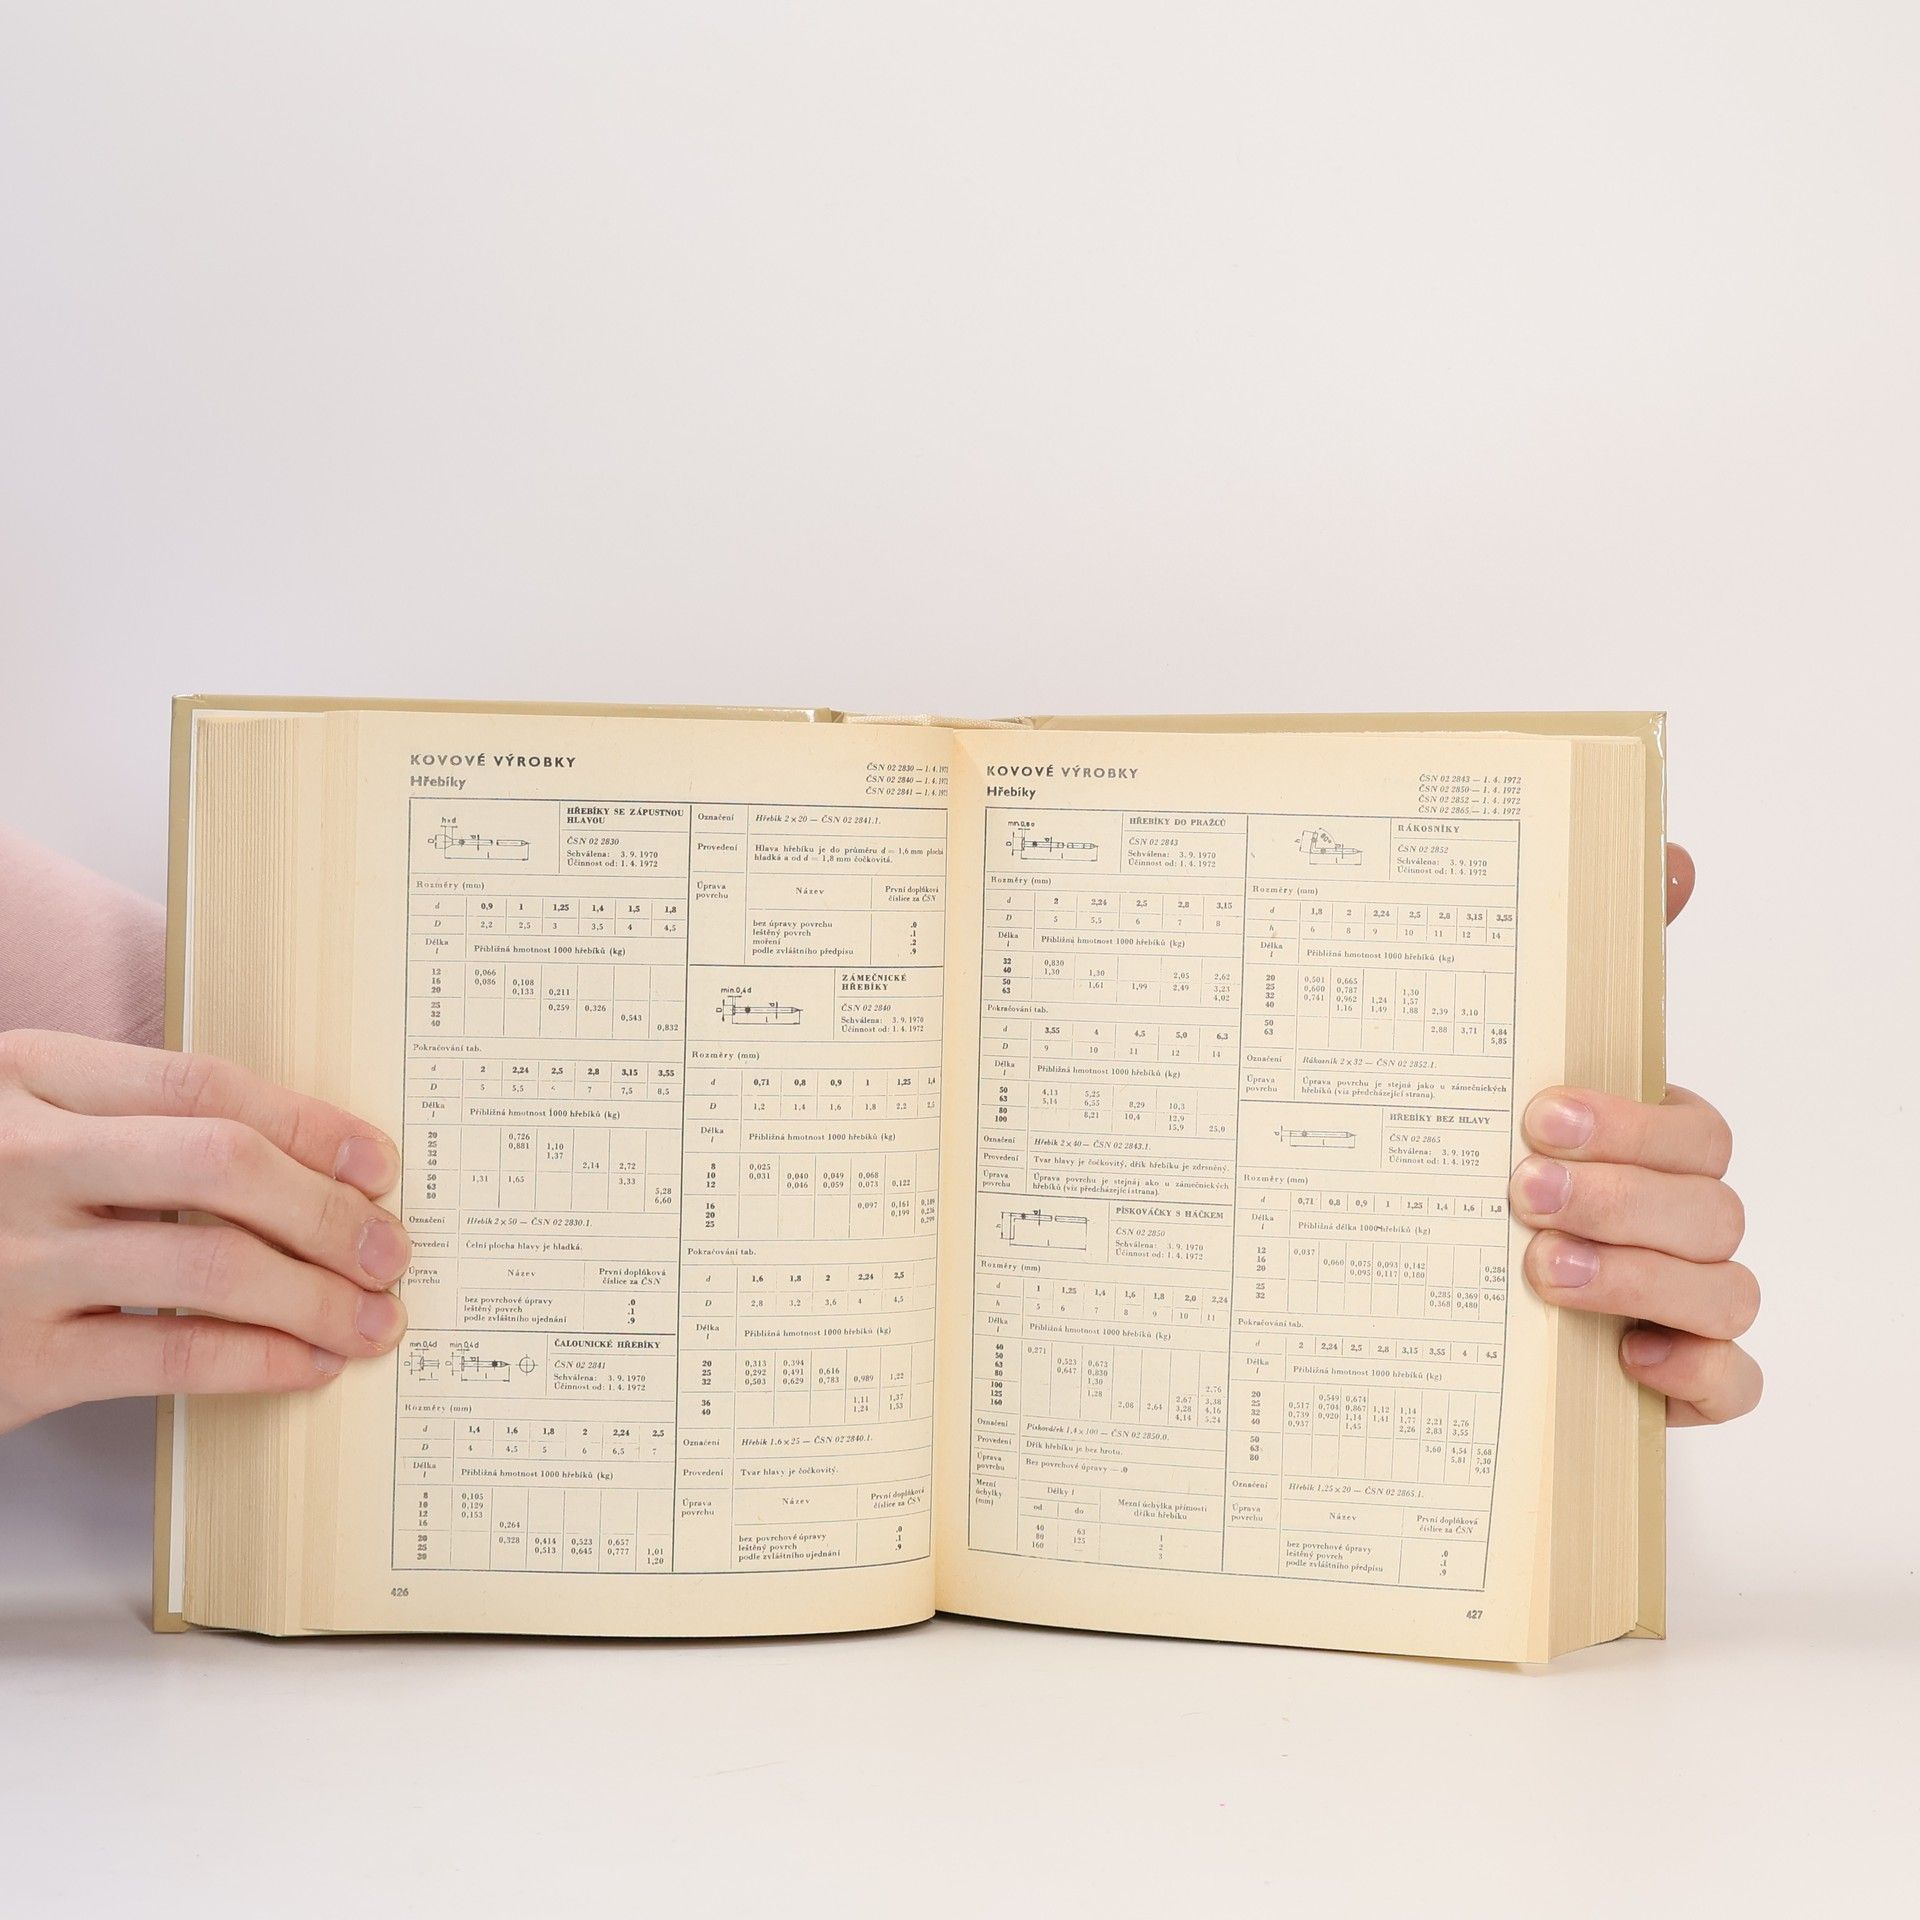 KOVOVÉ VÝROBKY
Hřebíky
ČSN 02 2830 — 1. 4. 1972
ČSN 02 2840 — 1. 4. 1972
ČSN 02 2841 — 1. 4. 1972
HŘEBÍKY SE ZÁPUSTNOU
HLAVOU
ČSN 02 2830
Schválena: 3. 9. 1970
Účinnost od: 1. 4. 1972
Rozměry (mm)
d 0,9 1 1,25 1,4 1,5 1,8
D 2,2 2,5 3 3,5 4 4,5
Délka
l
Přibližná hmotnost 1000 hřebíků (kg)
12 0,066
16 0,086 0,108
20 0,133 0,211
25 0,259 0,326
32 0,543
40 0,832
Pokračování tab.
d 2 2,24 2,5 2,8 3,15 3,55
D 5 5,5 7 7,5 8,5
Délka
l
Přibližná hmotnost 1000 hřebíků (kg)
20 0,726
25 0,881 1,10
32 1,37
40 2,14 2,72
50 1,31 1,65 3,33
63 5,28
80 6,60
Označení Hřebík 2 × 50 — ČSN 02 2830.1.
Provedení Čelní plocha hlavy je hladká.
Úprava
povrchu
Název
První doplňková
číslice za ČSN
bez povrchové úpravy .0
leštěný povrch .1
podle zvláštního ujednání .9
min.0,4d min.0,4d
ČALOUNICKÉ HŘEBÍKY
ČSN 02 2841
Schválena: 3. 9. 1970
Účinnost od: 1. 4. 1972
Rozměry (mm)
d 1,4 1,6 1,8 2 2,24 2,5
D 4 4,5 5 6 6,5 7
Délka
l
Přibližná hmotnost 1000 hřebíků (kg)
8 0,105
10 0,129
12 0,153
16 0,264
20 0,328 0,414 0,523 0,657
25 0,513 0,645 0,777 1,01
1,20
426
Označení Hřebík 2 × 20 — ČSN 02 2841.1.
Provedení Hlava hřebíku je do průměru d = 1,6 mm plochá
hladká a od d = 1,8 mm čočkovitá.
Úprava
povrchu
Název
První doplňková
číslice za ČSN
bez úpravy povrchu .0
leštěný povrch .1
moření .2
podle zvláštního předpisu .9
min.0,4d
ZÁMEČNICKÉ
HŘEBÍKY
ČSN 02 2840
Schválena: 3. 9. 1970
Účinnost od: 1. 4. 1972
Rozměry (mm)
d 0,71 0,8 0,9 1 1,25 1,4
D 1,2 1,4 1,6 1,8 2,2 2,5
Délka
l
Přibližná hmotnost 1000 hřebíků (kg)
8 0,025
10 0,031 0,040 0,049 0,068
12 0,046 0,059 0,073 0,122
16 0,097 0,161
20 0,199
25
Pokračování tab.
d 1,6 1,8 2 2,24 2,5
D 2,8 3,2 3,6 4 4,5
Délka
l
Přibližná hmotnost 1000 hřebíků (kg)
20 0,313 0,394
25 0,292 0,491 0,616
32 0,503 0,629 0,783 0,989 1,22
36 1,11 1,37
40 1,24 1,53
Označení Hřebík 1.6 × 25 — ČSN 02 2840.1.
Provedení Tvar hlavy je čočkovitý.
Úprava
povrchu
Název
První doplňková
číslice za ČSN
bez povrchové úpravy .0
leštěný povrch .1
podle zvláštního ujednání .9
KOVOVÉ VÝROBKY
Hřebíky
ČSN 02 2843 — 1. 4. 1972
ČSN 02 2850 — 1. 4. 1972
ČSN 02 2852 — 1. 4. 1972
ČSN 02 2865 — 1. 4. 1972
HŘEBÍKY DO PRAŽCŮ
ČSN 02 2843
Schválena: 3. 9. 1970
Účinnost od: 1. 4. 1972
Rozměry (mm)
d 2 2,24 2,5 2,8 3,15
D 5 5,5 6 7 8
Délka
l
Přibližná hmotnost 1000 hřebíků (kg)
32 0,830
40 1,30 1,30 2,05 2,62
50 1,61 1,99 2,49 3,23
63 4,02
Pokračování tab.
d 3,55 4 4,5 5,0 6,3
D 9 10 11 12 14
Délka
l
Přibližná hmotnost 1000 hřebíků (kg)
50 4,13 5,25
63 5,14 6,55 8,29 10,3
80 8,21 10,4 12,9
100 15,9 25,0
Označení Hřebík 2 × 40 — ČSN 02 2843.1.
Provedení Tvar hlavy je čočkovitý, dřík hřebíku je zdrsněný.
Úprava
povrchu
Úprava povrchu je stejná jako u zámečnických
hřebíků (viz předcházející strana).
PÍSKOVÁČKY S HÁČKEM
ČSN 02 2850
Schválena: 3. 9. 1970
Účinnost od: 1. 4. 1972
Rozměry (mm)
d 1 1,25 1,4 1,6 1,8 2,0 2,24
h 5 6 7 8 9 10 11
Délka
l
Přibližná hmotnost 1000 hřebíků (kg)
40 0,271
50 0,523 0,673
63 0,647 0,830
80 1,30
100 1,28 2,76
125 2,08 2,64 2,67 3,38
160 3,28 4,16
4,14 5,24
Označení Pískováček 1,4 × 100 — ČSN 02 2850.0.
Provedení Dřík hřebíku je bez hrotu.
Úprava
povrchu
Bez povrchové úpravy — .0
Mezní
úchylky
(mm)
Délky l
od do
Mezní úchylka přímosti
dříku hřebíku
40 63 1
80 125 2
160 3
RÁKOSNÍKY
ČSN 02 2852
Schválena: 3. 9. 1970
Účinnost od: 1. 4. 1972
Rozměry (mm)
d 1,8 2 2,24 2,5 2,8 3,15 3,55
h 6 8 9 10 11 12 14
Délka
l
Přibližná hmotnost 1000 hřebíků (kg)
20 0,501 0,665
25 0,600 0,787 1,30
32 0,741 0,962 1,24 1,57
40 1,16 1,49 1,88 2,39 3,10
50 2,88 3,71 4,84
63 5,85
Označení Rákosník 2 × 32 — ČSN 02 2852.1.
Úprava
povrchu
Úprava povrchu je stejná jako u zámečnických
hřebíků (viz předcházející strana).
HŘEBÍKY BEZ HLAVY
ČSN 02 2865
Schválena: 3. 9. 1970
Účinnost od: 1. 4. 1972
Rozměry (mm)
d 0,71 0,8 0,9 1 1,25 1,4 1,6 1,8
Délka
l
Přibližná délka 1000 hřebíků (kg)
12 0,037
16 0,060 0,075 0,093 0,142 0,284
20 0,095 0,117 0,180 0,364
25 0,285 0,369 0,463
32 0,368 0,480
Pokračování tab.
d 2 2,24 2,5 2,8 3,15 3,55 4 4,5
Délka
l
Přibližná hmotnost 1000 hřebíků (kg)
20 0,549 0,674
25 0,517 0,704 0,867 1,12 1,14
32 0,739 0,920 1,14 1,41 1,77 2,21 2,76
40 0,937 1,45 2,26 2,83 3,55
50 3,60 4,54 5,68
63 5,81 7,30
80 9,43
Označení Hřebík 1,25 × 20 — ČSN 02 2865.1.
Úprava
povrchu
Název
První doplňková
číslice za ČSN
bez povrchové úpravy .0
leštěný povrch .1
podle zvláštního předpisu .9
427